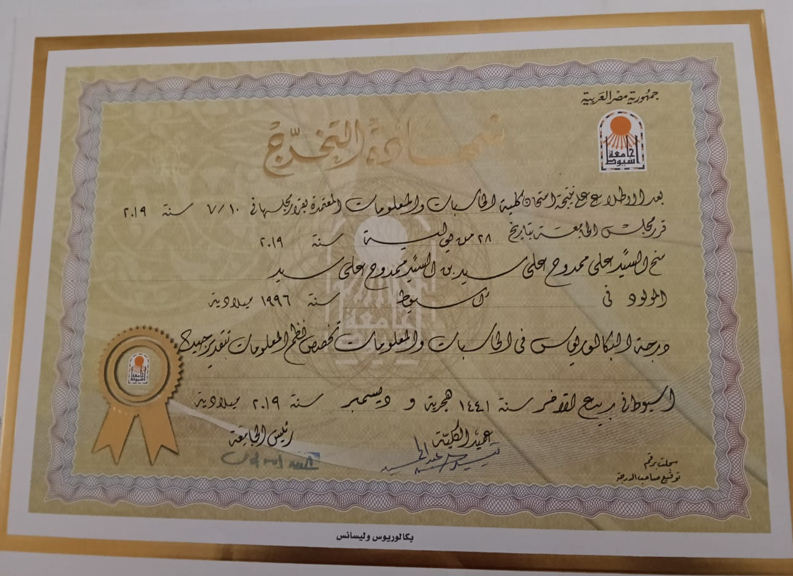 جمهورية مصر العربية
شهادة التخرج
جامعة
أسيوط
بعد الاطلاع على نتيجة امتحان كلية الحاسبات والمعلومات المعتمدة بقرار مجلسها في ٧/١٠ سنة ٢٠١٩
قرر مجلس الجامعة بتاريخ ٢٨ من يولية سنة ٢٠١٩
منح السيد على ممدوح على سيد بن السيد ممدوح على سيد
المولود فى أسيوط سنة ١٩٩٦ ميلادية
درجة البكالوريوس فى الحاسبات والمعلومات تخصص نظم المعلومات بتقدير جيد
أسيوط فى ربيع الآخر سنة ١٤٤١ هجرية و ديسمبر سنة ٢٠١٩ ميلادية
عميد الكلية رئيس الجامعة
سجلت برقم
توقيع صاحب الدرجة
بكالوريوس وليسانس